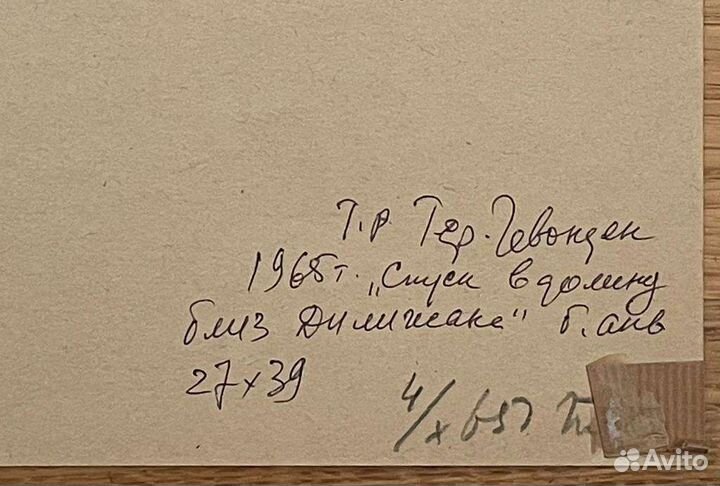 Т.Р. Тер-Гевондян
1965г. „Спуск в долину
близ Дилижана" б. акв
27х39
4/X 65г.
Avito